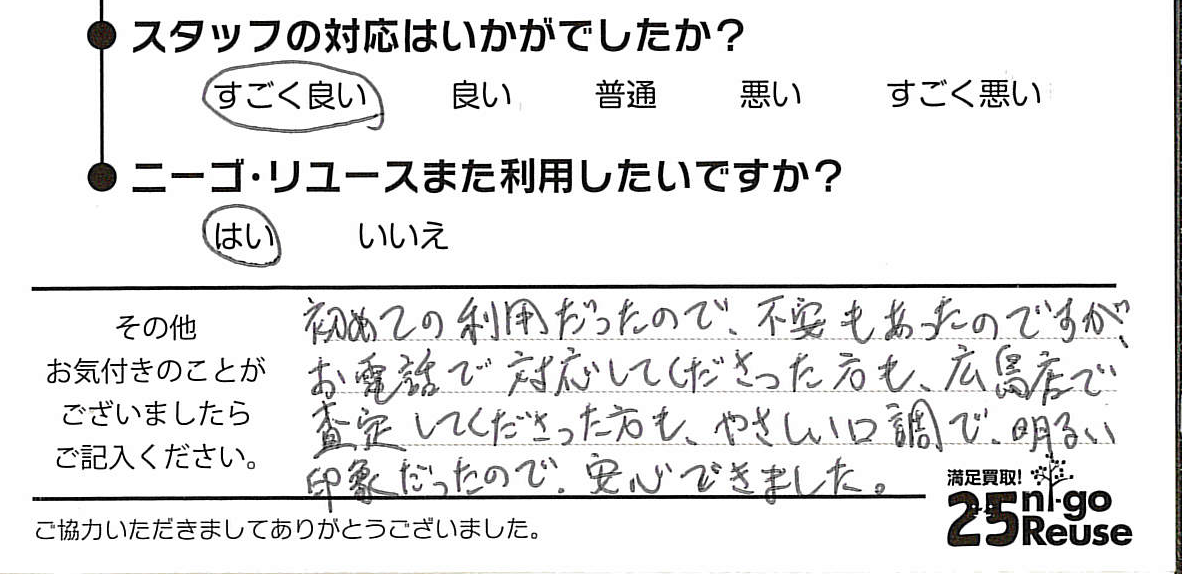 スタッフの対応はいかがでしたか？
すごく良い 良い 普通 悪い すごく悪い
ニーゴ・リユースまた利用したいですか？
はい いいえ
その他
お気付きのことが
ございましたら
ご記入ください。
初めての利用だったので、不安もあったのですが、
お電話で対応してくださった方も、広島店で
査定してくださった方も、やさしい口調で、明るい
印象だったので、安心できました。
満足買取!
25 ni-go
Reuse
ご協力いただきましてありがとうございました。